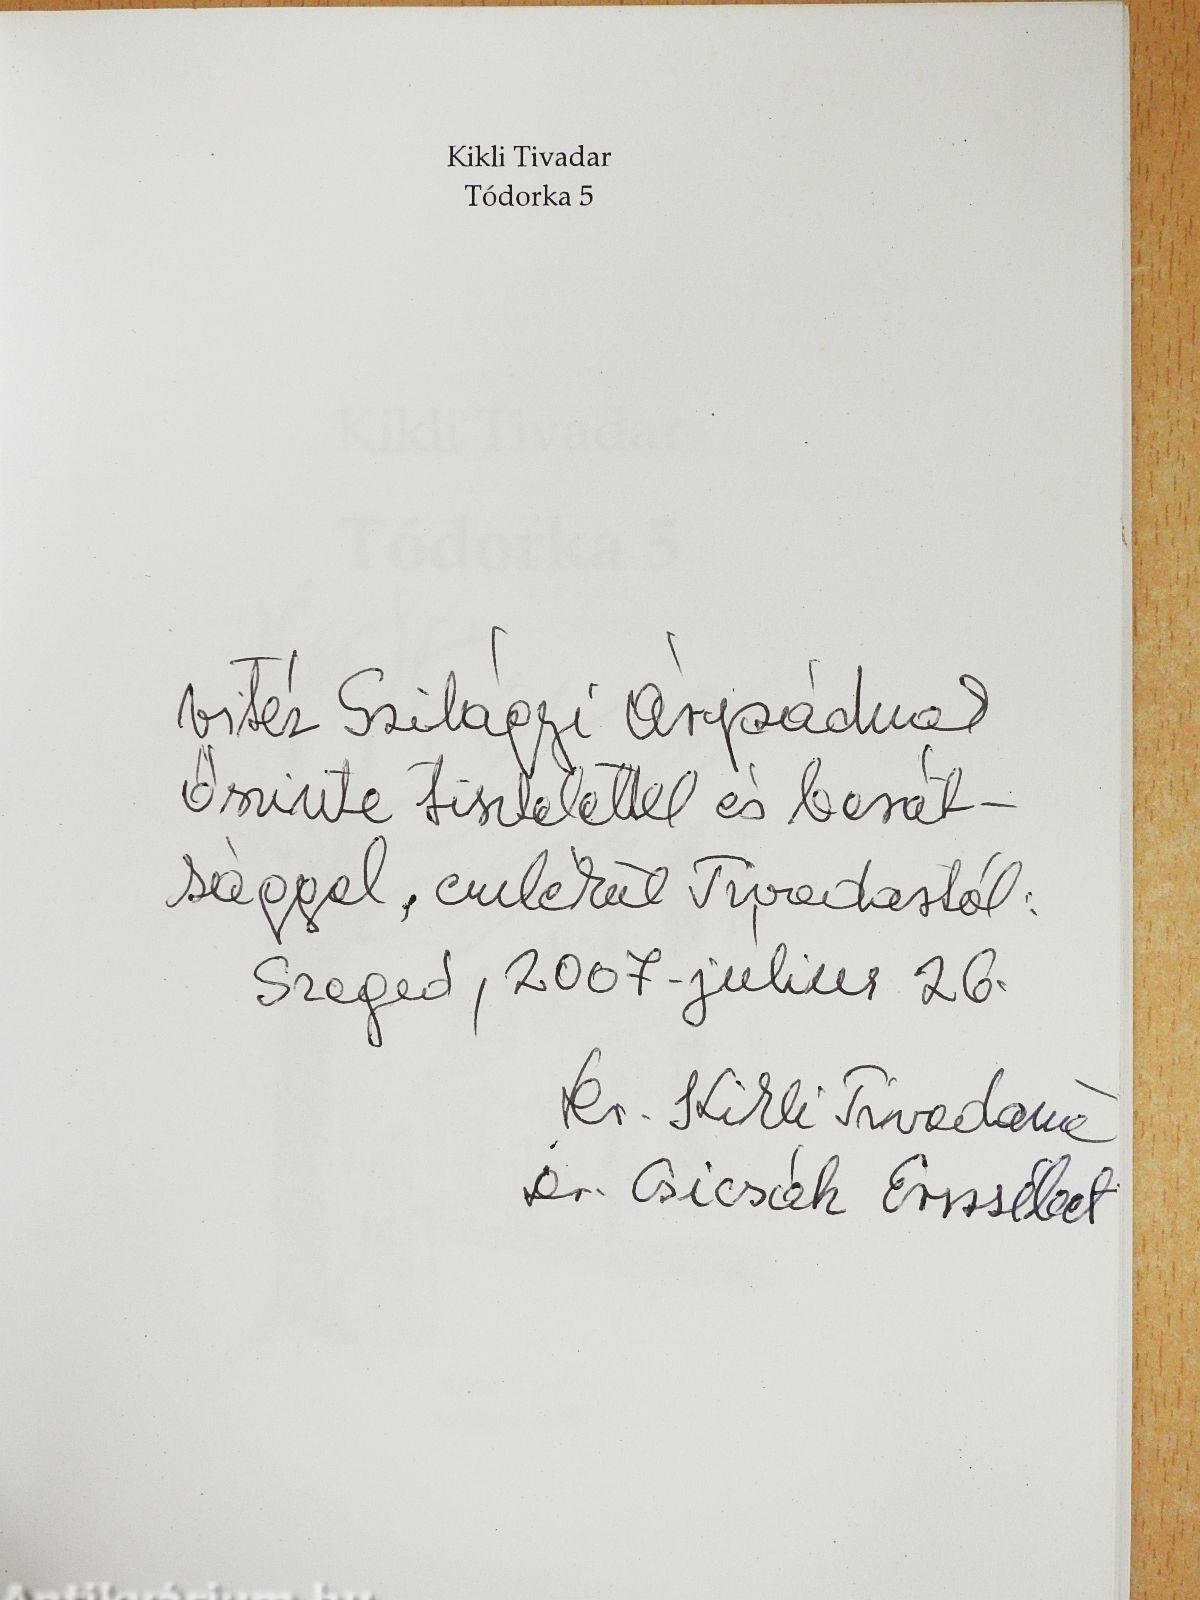 Kikli Tivadar
Tódorka 5
Kikli Tivadar
Tódorka 5
vitéz Szilágyi Árpádnak
Őszinte tisztelettel és barát-
sággal, emlékül Tivadartól:
Szeged, 2007-július 26.
dr. Kikli Tivadarné
dr. Csicsák Erzsébet
Antikvárium.hu